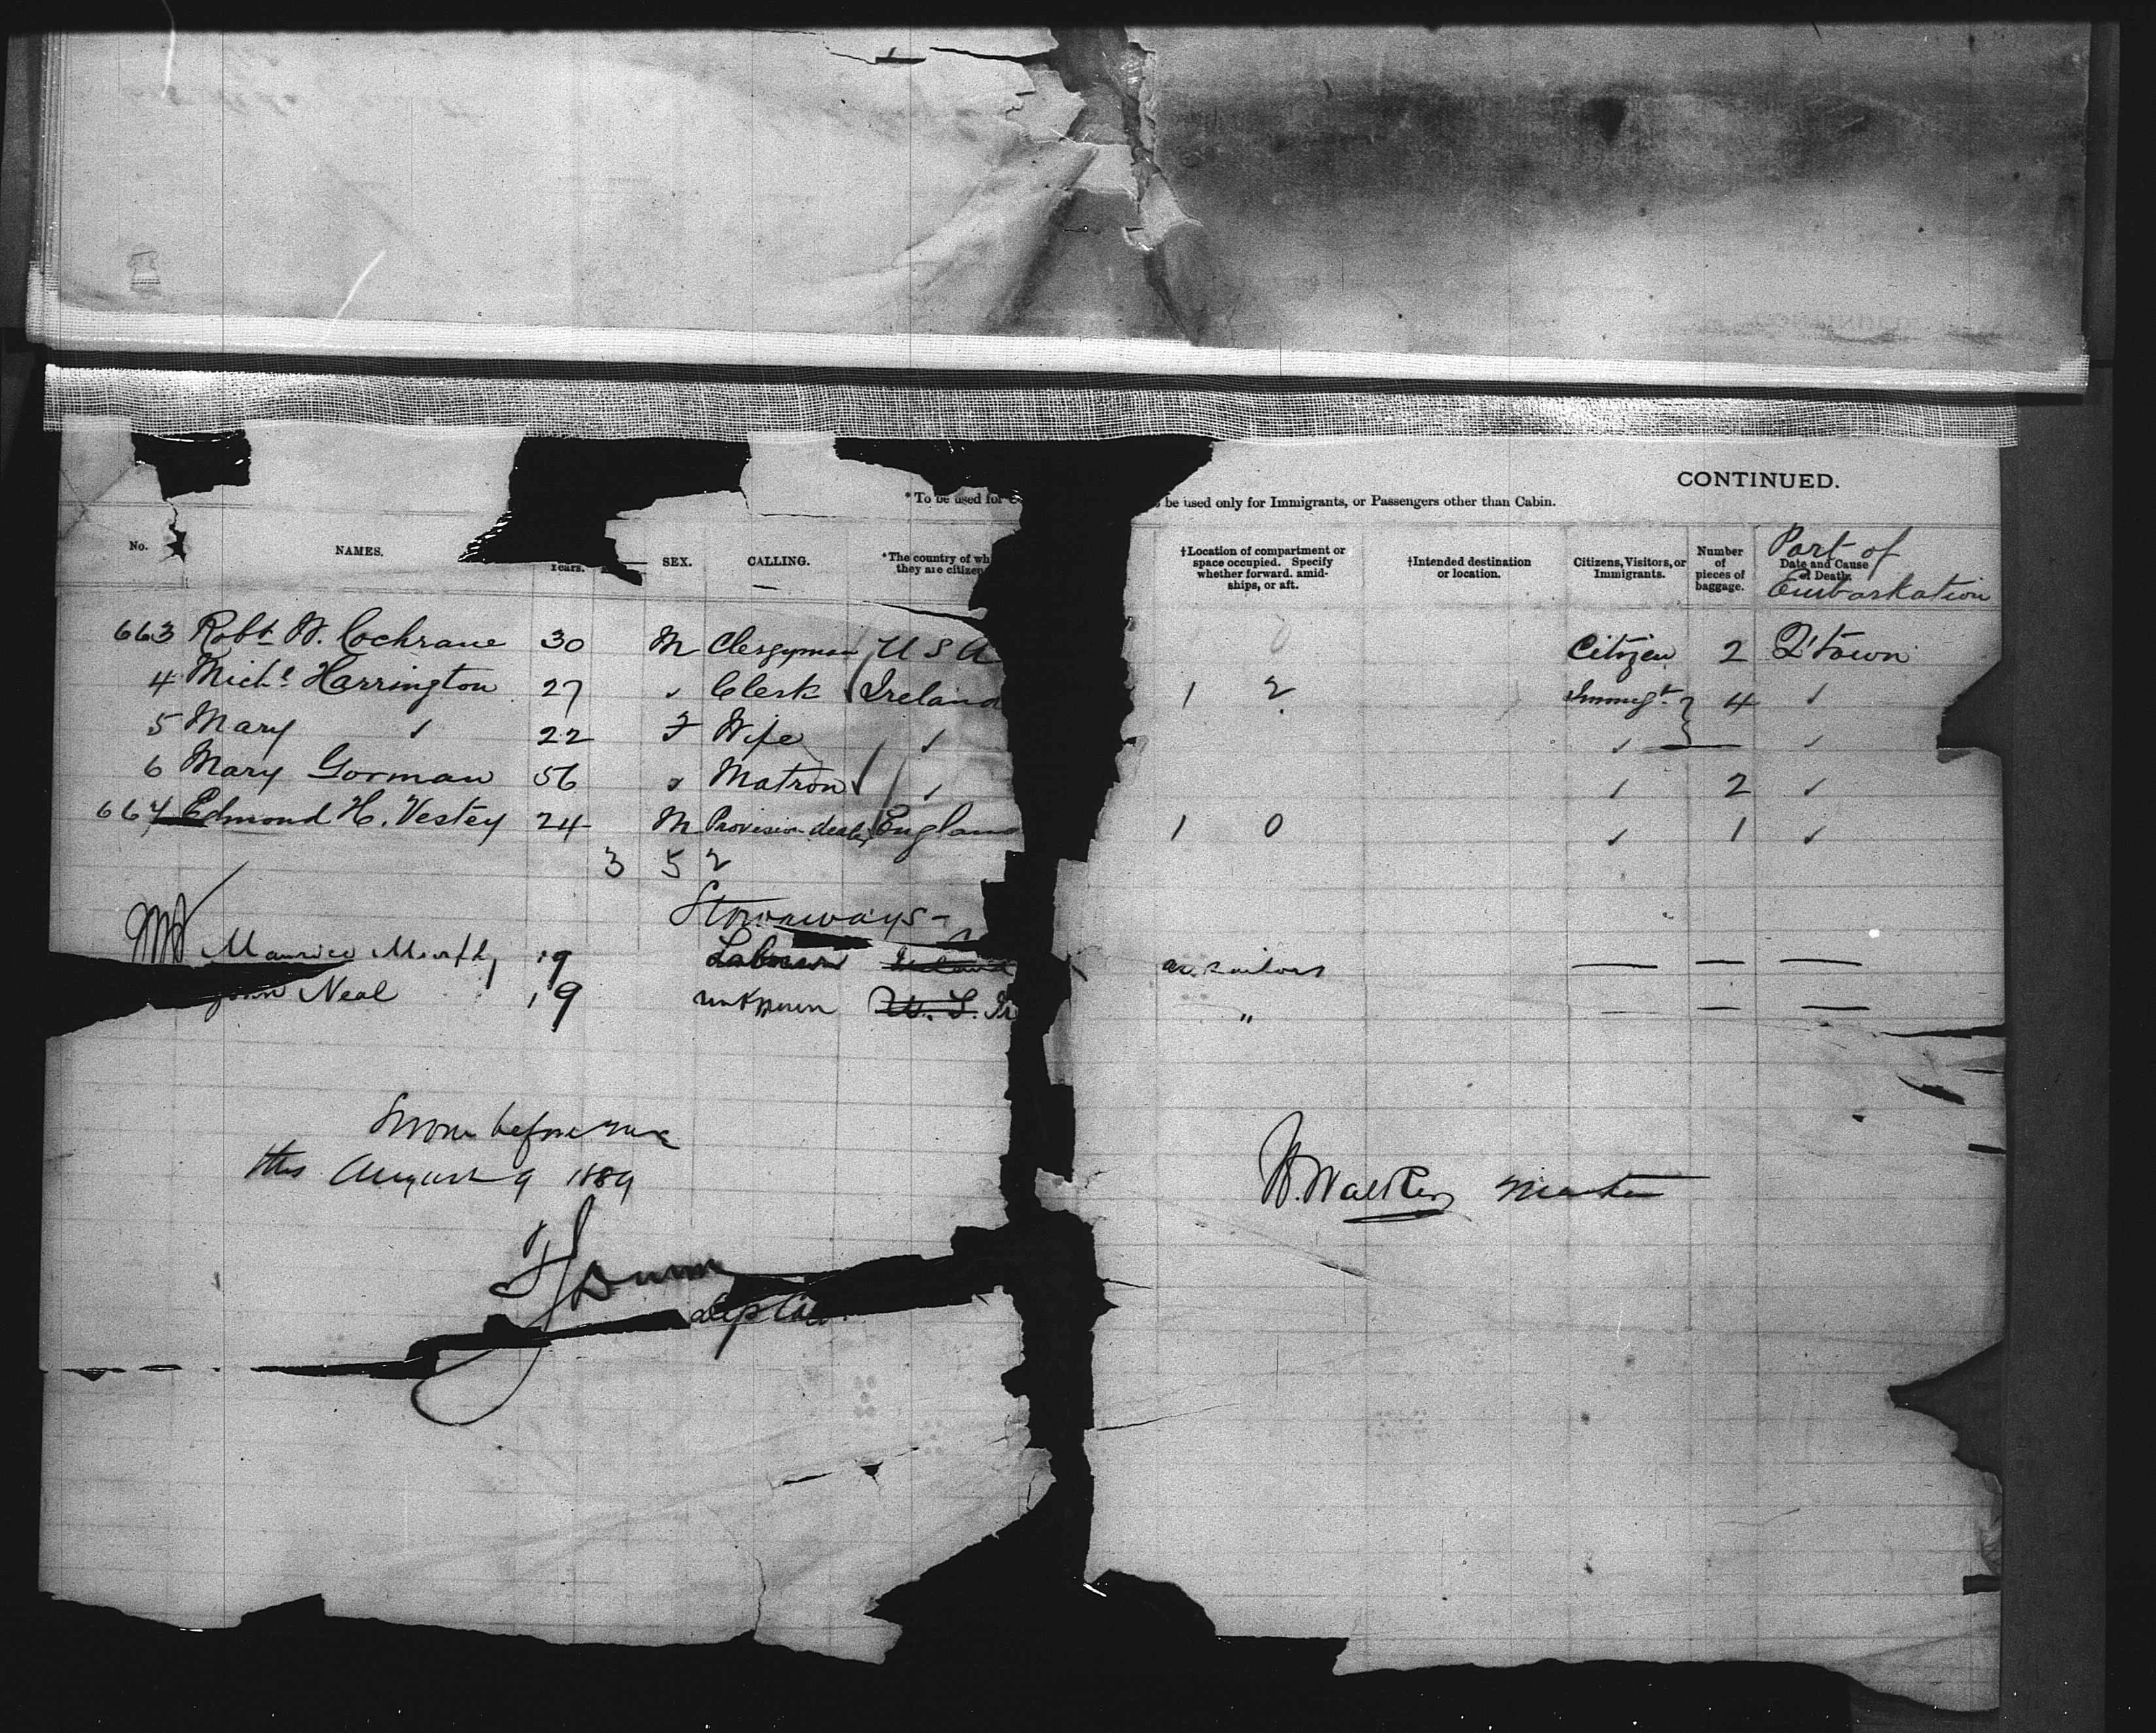 CONTINUED.
*To be used for be used only for Immigrants, or Passengers other than Cabin.
No. NAMES. Years. SEX. CALLING. *The country of wh they are citizen †Location of compartment or space occupied. Specify whether forward, amid-ships, or aft. †Intended destination or location. Citizens, Visitors, or Immigrants. Number of pieces of baggage. Date and Cause of Death. Port of Embarkation
663 Robt. W. Cochrane 30 M Clergyman U S A Citizen 2 Q'town
4 Michl Harrington 27 " Clerk Ireland 1 2 Immigt. 4 "
5 Mary " 22 F Wife " " — "
6 Mary Gorman 56 " Matron " " 2 "
667 Edmond H. Vestey 24 M Provision dealer England 1 0 " 1 "
3 5 2
Stowaways -
Maurice Murphy 19 Labourer Ireland as sailors — — —
John Neal 19 unknown U. S. Ir " — — —
Sworn before me
this August 9 1889
W. Walker Master
Dep Col.